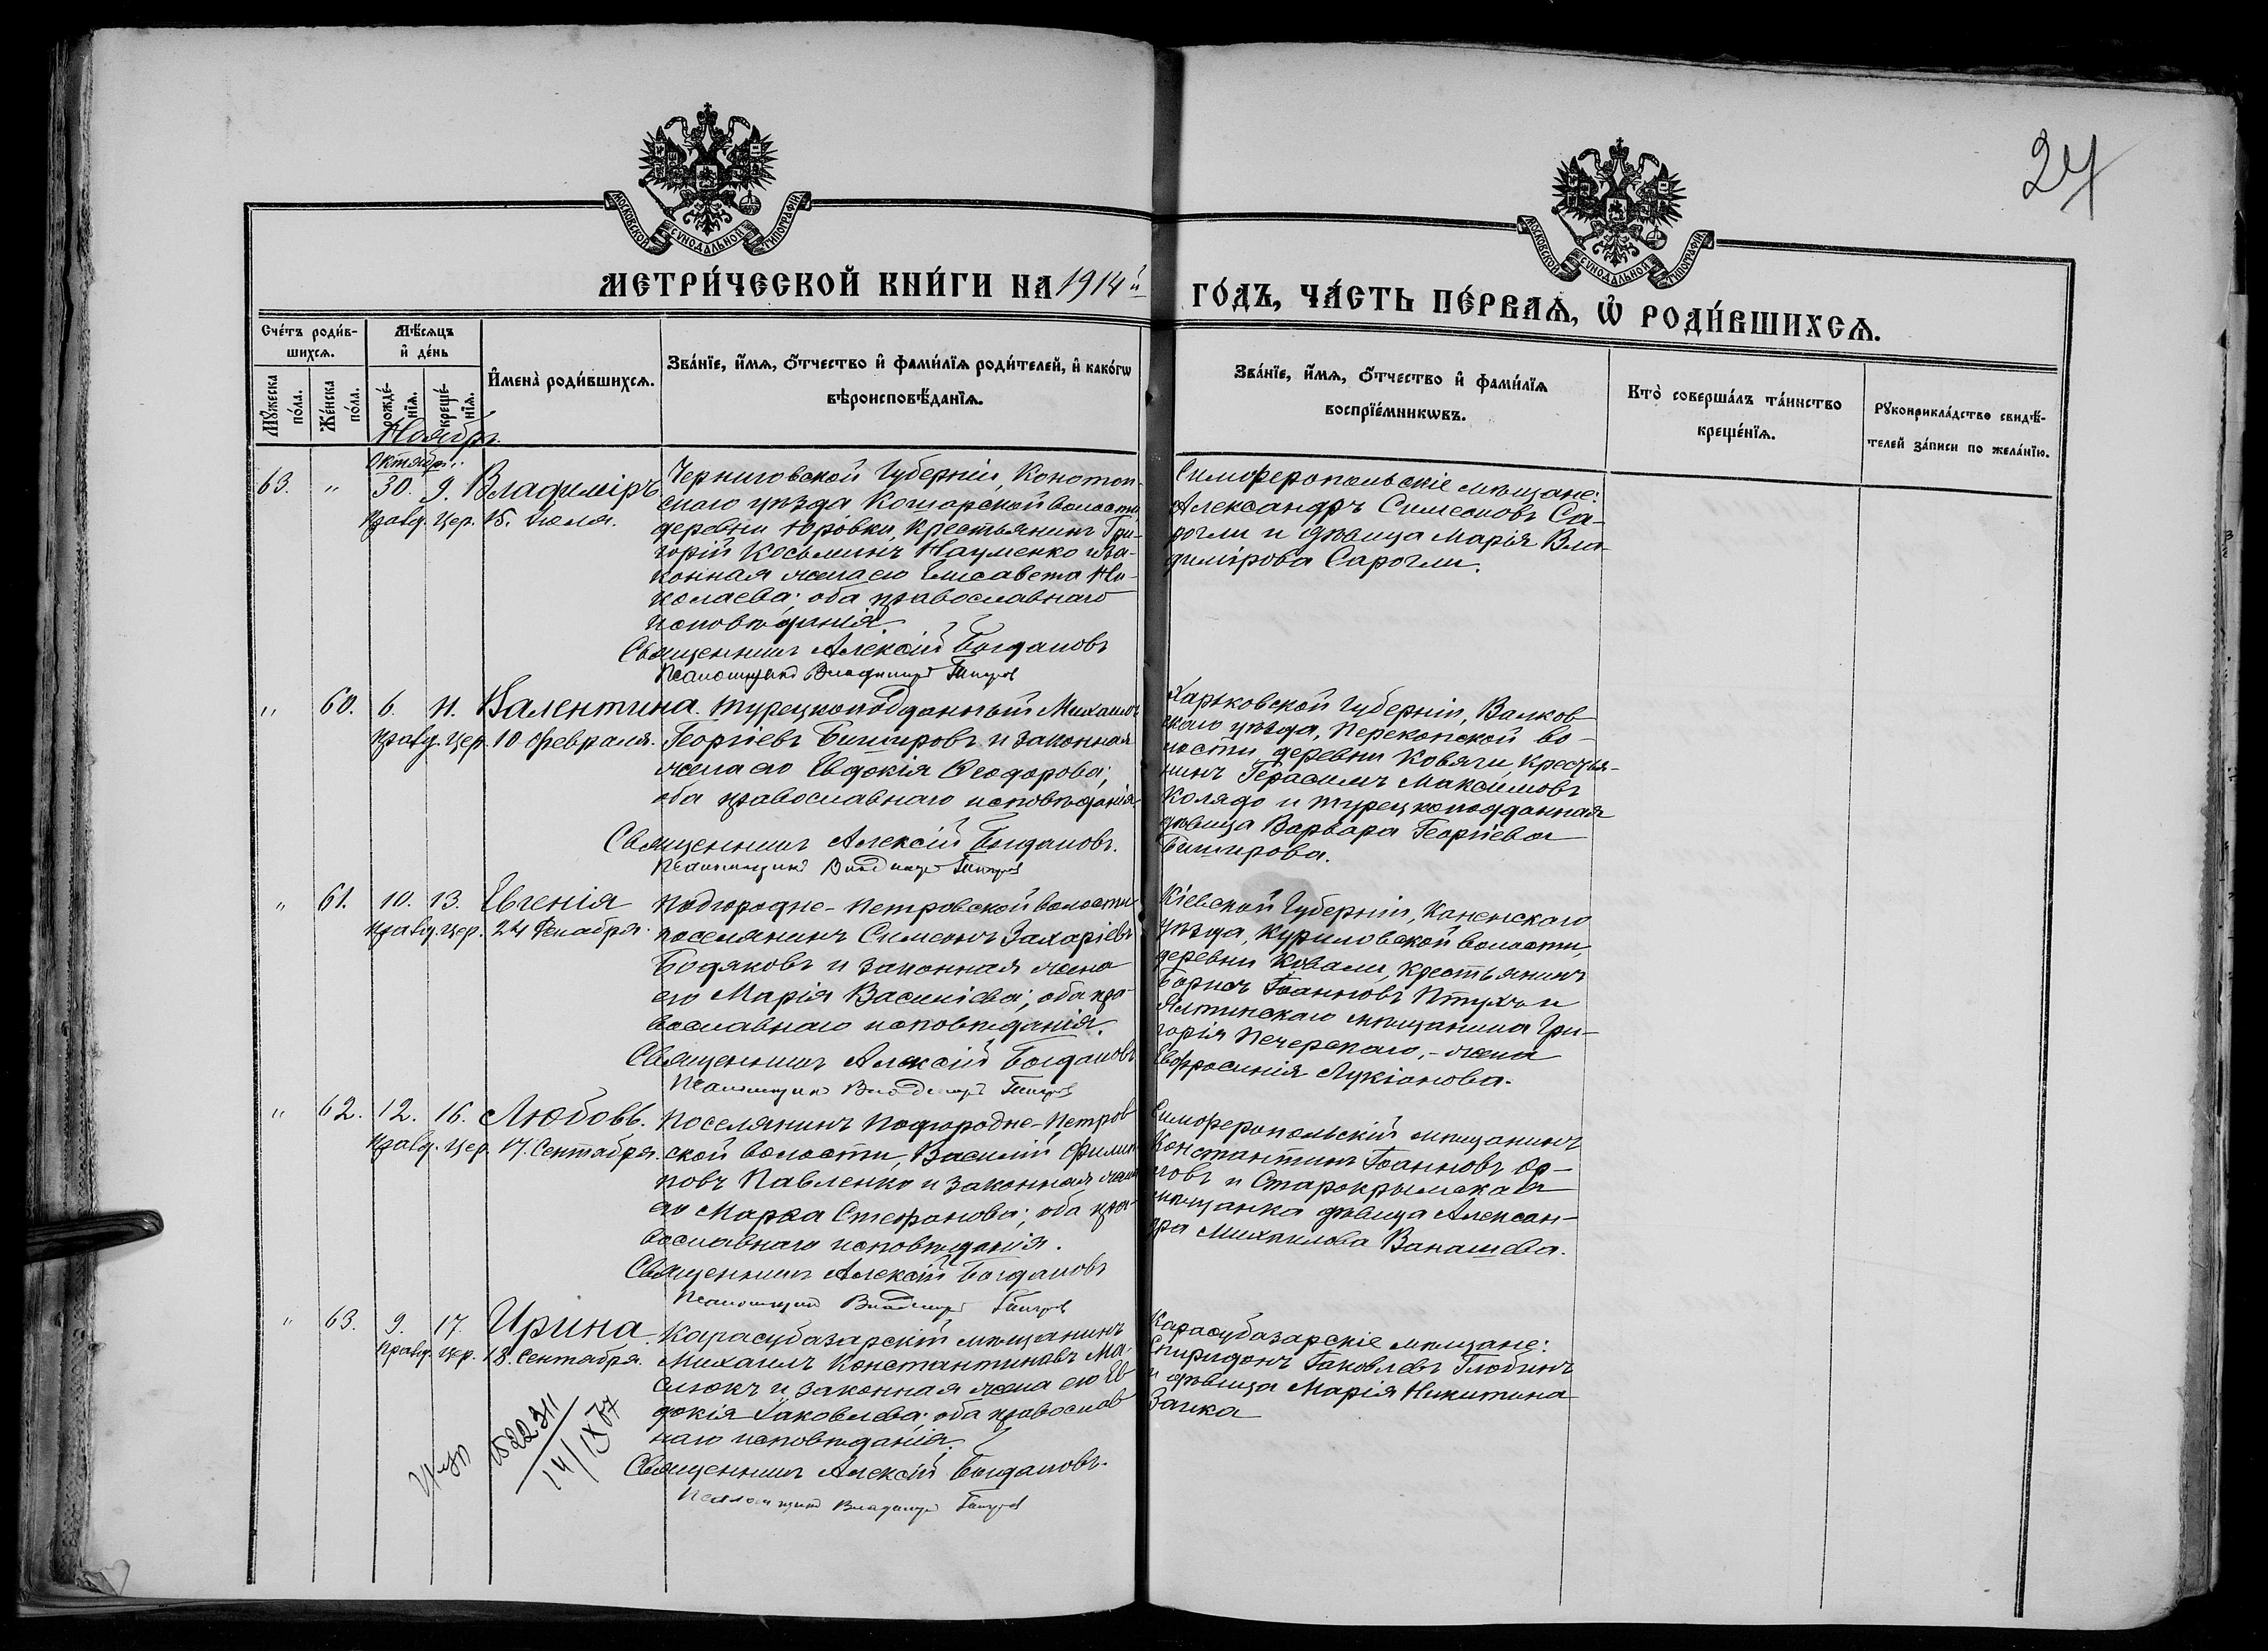 24
МОСКОВСКОЙ СѴНОДАЛЬНОЙ ТИПОГРАФІИ.
МОСКОВСКОЙ СѴНОДАЛЬНОЙ ТИПОГРАФІИ.
МЕТРИ́ЧЕСКОЙ КНИ́ГИ НА 1914й
ГО́ДЪ, ЧА́СТЬ ПЕ́РВАѦ, Ѡ҆ РОДИ́ВШИХСѦ.
Сче́тъ роди́в-
шихсѧ.
Мѣ́сѧцъ
и҆ де́нь
Мꙋ́жеска
по́ла.
Же́нска
по́ла.
рожде́-
нїѧ.
креще́-
нїѧ.
И҆мена̀ роди́вшихсѧ.
Зва́нїе, и҆́мѧ, ѻ҆́тчество и҆ фами́лїѧ роди́телей, и҆ како́гѡ
вѣроисповѣ́данїѧ.
Зва́нїе, и҆́мѧ, ѻ҆́тчество и҆ фами́лїѧ
воспрїе́мникѡвъ.
Кто̀ соверша́лъ та́инство
креще́нїѧ.
Рꙋкоприкла́дство свидѣ́-
телей за́писи по жела́нїю.
Ноябрь.
Октября.
63. " 30. 9. Владиміръ
правд. цер. 15. Іюля.
Черниговской Губерніи, Конотоп-
скаго уѣзда Кошарской волости
деревни Юровки, Крестьянинъ Гри-
горій Косьминъ Науменко и за-
конная жена его Елисавета Ни-
колаева; оба православнаго
исповѣданія
Священникъ Алексій Богдановъ
Псаломщикъ Владимиръ
Симферопольскіе мѣщане:
Александръ Симеоновъ Са-
рогли и дѣвица Марія Вла-
димірова Сарогли.
" 60. 6. 11. Валентина.
правд. цер. 10 Февраля.
Турецкоподданный Михаилъ
Георгіевъ Бишировъ и законная
жена его Евдокія Ѳеодорова;
оба православнаго исповѣданія
Священникъ Алексій Богдановъ.
Псаломщикъ Владимиръ
Харьковской Губерніи, Валков-
скаго уѣзда, Перекопской во-
лости деревни Ковяги, крестья-
нинъ Герасимъ Максимовъ
Колядо и турецкоподданная
дѣвица Варвара Георгіева
Биширова.
" 61. 10. 13. Евгенія
правд. цер. 24 Декабря.
Подгородне-Петровской волости
поселянинъ Симеонъ Захаріевъ
Бодяковъ и законная жена
его Марія Василіева; оба пра-
вославнаго исповѣданія.
Священникъ Алексій Богдановъ
Псаломщикъ Владимиръ
Кіевской Губерніи, Каневскаго
уѣзда, Куриловской волости,
деревни Ковали, крестьянинъ
Борисъ Іоанновъ Птухъ и
Ялтинскаго мѣщанина Гри-
горія Печерскаго, - жена
Евфросинія Лукіанова.
" 62. 12. 16. Любовь.
правд. цер. 17. Сентября.
Поселянинъ Подгородне-Петров
ской волости, Василій Филип
повъ Павленко и законная жена
его Марѳа Стефанова; оба пра-
вославнаго исповѣданія.
Священникъ Алексій Богдановъ
Псаломщикъ Владимиръ
Симферопольскій мѣщанинъ
Константинъ Іоанновъ Ор-
ловъ и Старокрымская
мѣщанка дѣвица Алексан-
дра Михаилова Ванашева.
" 63. 9. 17. Ирина
правд. цер. 18. Сентября.
Карасубазарскій мѣщанинъ
Михаилъ Константиновъ Ма-
слюкъ и законная жена его Ев
докія Іаковлева; оба православ
наго исповѣданія.
Священникъ Алексій Богдановъ.
Псаломщикъ Владимиръ
Карасубазарскіе мѣщане:
Спиридонъ Іаковлевъ Глобинъ
и дѣвица Марія Никитина
Заика
1522311
14/IX 77